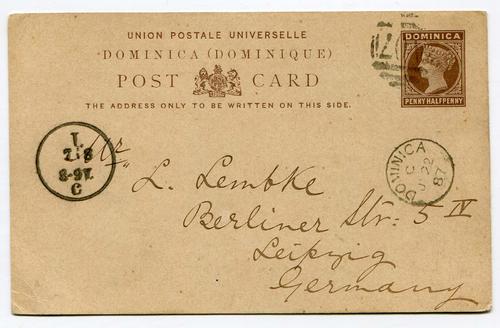 UNION POSTALE UNIVERSELLE
DOMINICA (DOMINIQUE)
POST CARD
THE ADDRESS ONLY TO BE WRITTEN ON THIS SIDE.
DOMINICA
PENNY HALFPENNY
DOMINICA
C
22
87
L.
8-9V.
C
Mr
L. Lembke
Berliner Str. 5 IV
Leipzig
Germany